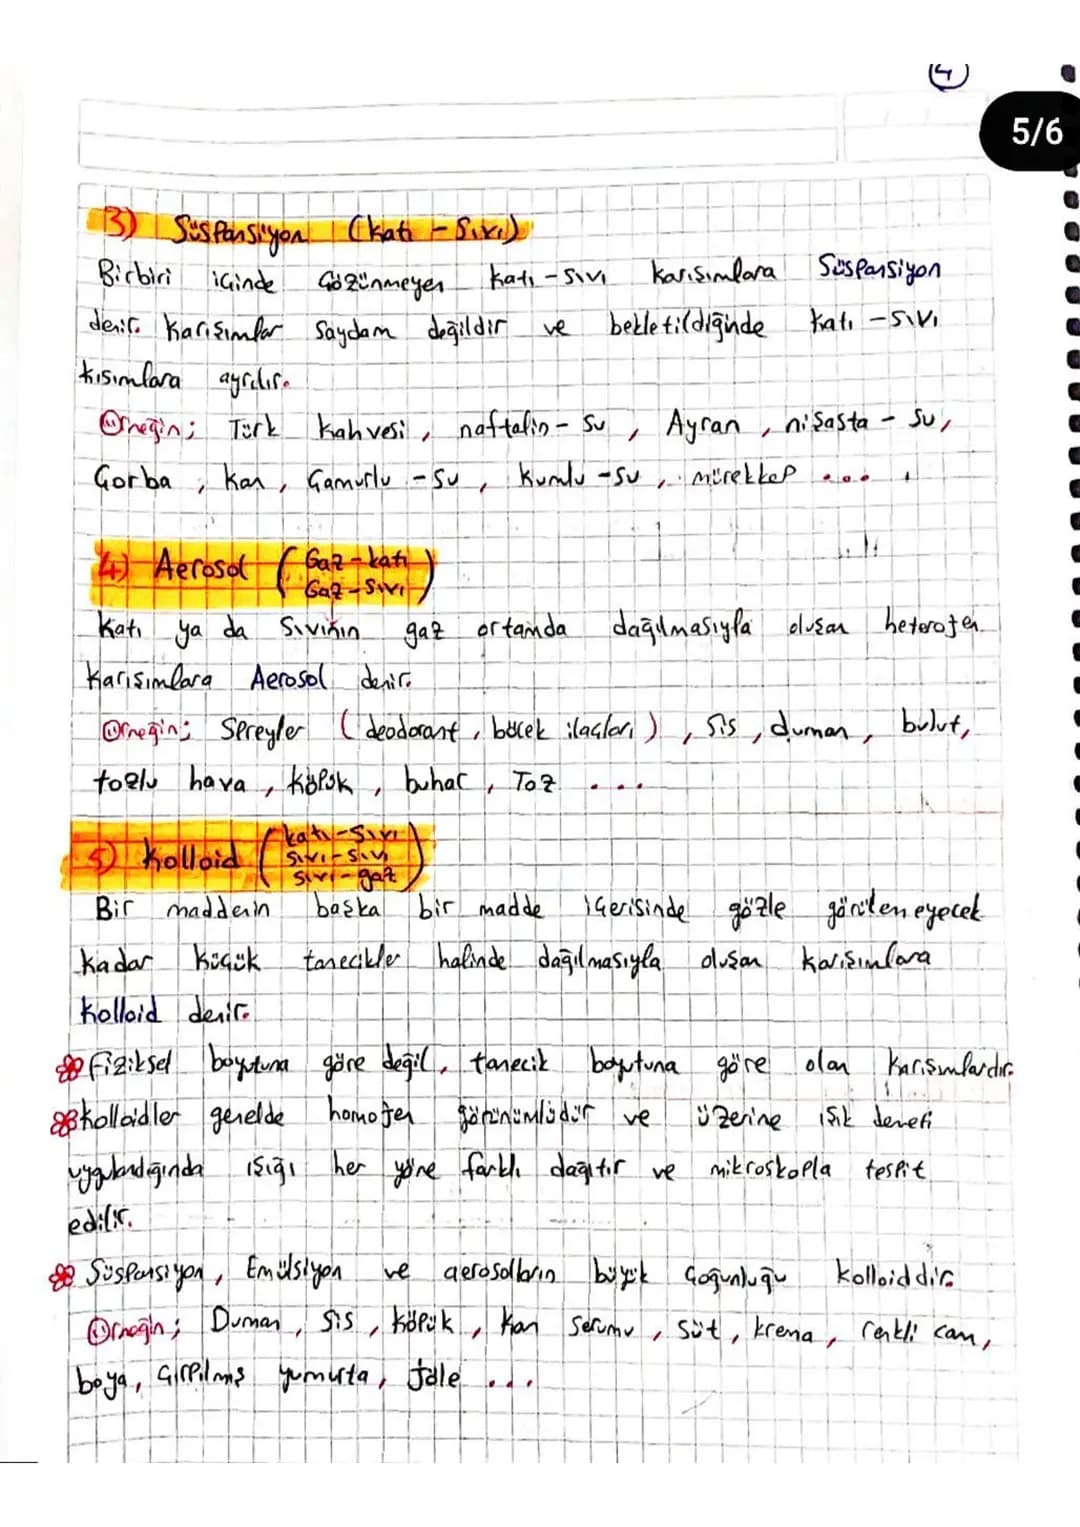 4
5/6
3) Süspansiyon (katı - Sıvı)
Birbiri içinde Çözünmeyen katı - sıvı karışımlara Süspansiyon
denir. Karışımlar Saydam değildir ve bekletildiğinde katı - sıvı
kısımlara ayrılır.
Örneğin; Türk kahvesi, naftalin - su, Ayran, nişasta - su,
Çorba, kan, Çamurlu - su, kumlu - su, mürekkep ....
4) Aerosol (Gaz - katı
Gaz - sıvı)
Katı ya da Sıvının gaz ortamda dağılmasıyla oluşan heterojen
karışımlara Aerosol denir.
Örneğin; Spreyler (deodorant, böcek ilaçları), sis, duman, bulut,
tozlu hava, köpük, buhar, Toz ...
5) Kolloid (katı - sıvı
sıvı - sıvı
sıvı - gaz)
Bir maddenin başka bir madde içerisinde gözle görülemeyecek
kadar küçük tanecikler halinde dağılmasıyla oluşan karışımlara
Kolloid denir.
Fiziksel boyutuna göre değil, tanecik boyutuna göre olan karışımlardır.
Kolloidler genelde homojen görünümlüdür ve üzerine ışık deneti
uygulandığında ışığı her yöne farklı dağıtır ve mikroskopla tespit
edilir.
Süspansiyon, Emülsiyon ve aerosollerin büyük çoğunluğu kolloiddir.
Örneğin; Duman, sis, köpük, kan serumu, süt, krema, renkli cam,
boya, çırpılmış yumurta, jöle ...